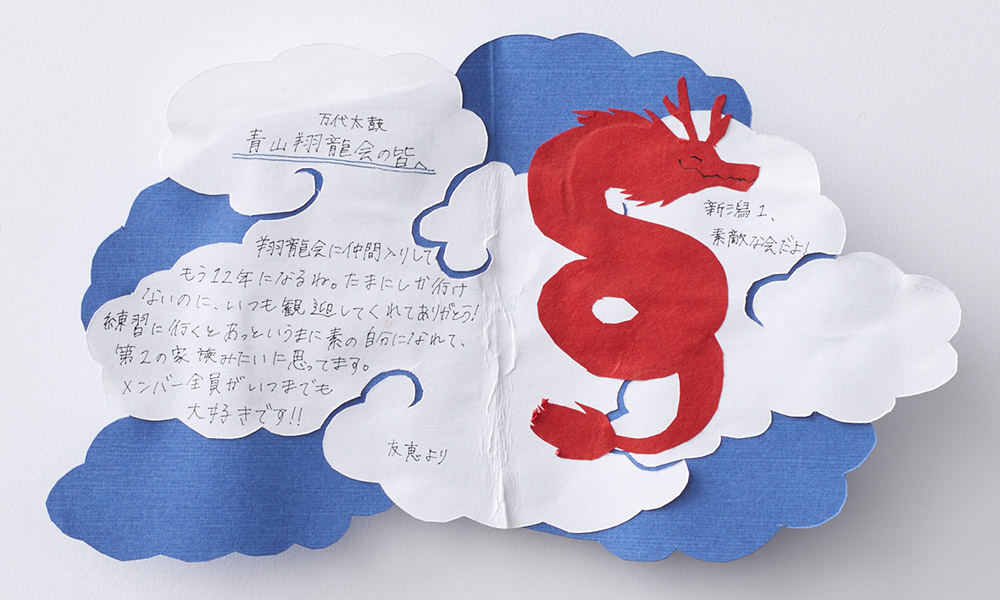 万代太鼓
青山翔龍会の皆へ
翔龍会に仲間入りして
もう12年になるね。たまにしか行け
ないのに、いつも観迎してくれてありがとう!
練習に行くとあっというまに素の自分になれて、
第2の家族みたいに思ってます。
メンバー全員がいつまでも
大好きです!!
友恵より
新潟1、
素敵な会だよ!